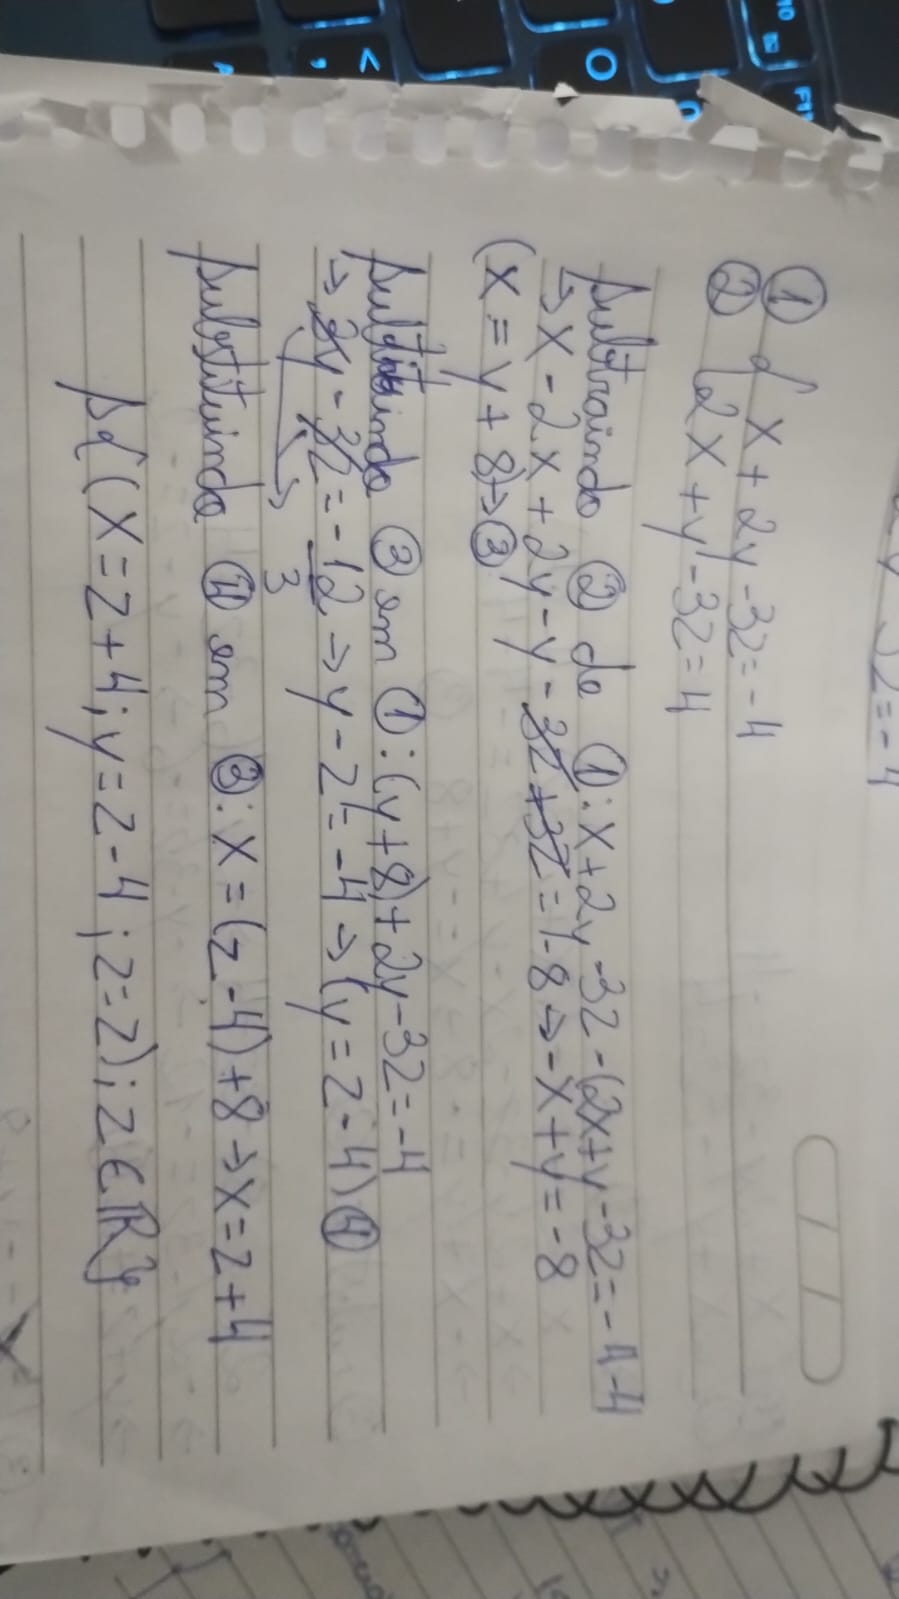 3z=-4
① { x + 2y - 3z = -4
② { 2x + y - 3z = 4
Subtraindo ② de ①: x + 2y - 3z - (2x + y - 3z = -4 - 4
→ x - 2x + 2y - y - 3z + 3z = -8 → -x + y = -8
(x = y + 8) → ③
③ em ①: (y + 8) + 2y - 3z = -4
→ 3y - 3z = -12/3 → y - z = -4 → (y = z - 4) ④
Substituindo ④ em ③: x = (z - 4) + 8 → x = z + 4
S{(x = z + 4; y = z - 4; z = z); z ∈ ℝ}